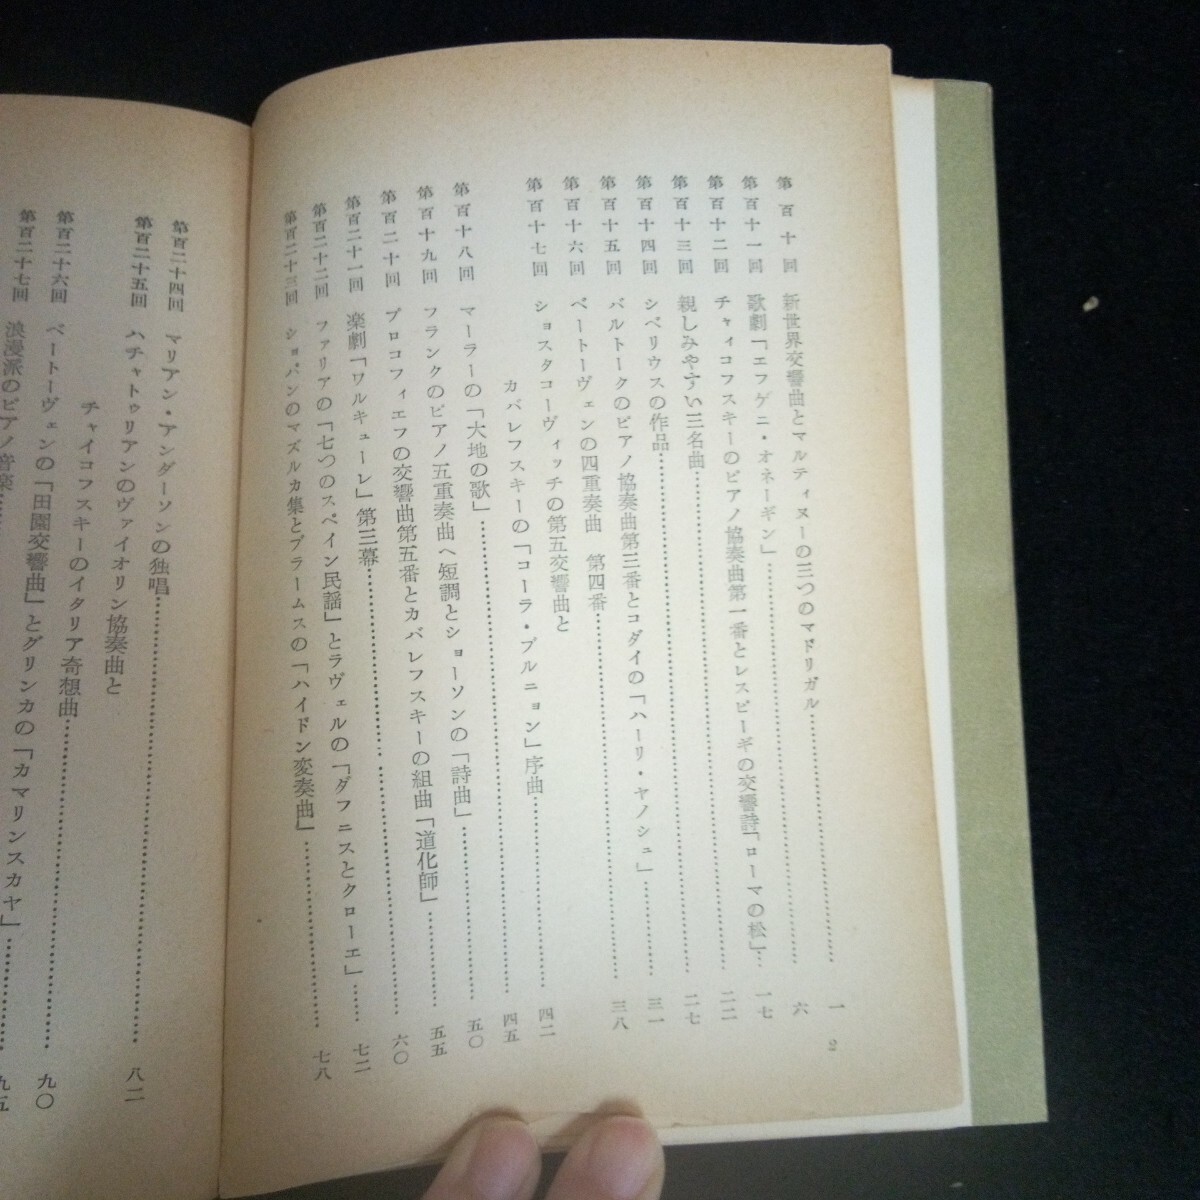 第百十回 新世界交響曲とマルティヌーの三つのマドリガル…………一
第百十一回 歌劇「エフゲニ・オネーギン」…………六
第百十二回 チャイコフスキーのピアノ協奏曲第一番とレスピーギの交響詩「ローマの松」…一七
第百十三回 親しみやすい三名曲…………二二
第百十四回 シベリウスの作品…………二七
第百十五回 バルトークのピアノ協奏曲第三番とコダイの「ハーリ・ヤノシュ」…………三一
第百十六回 ベートーヴェンの四重奏曲 第四番…………三八
第百十七回 ショスタコーヴィッチの第五交響曲と
カバレフスキーの「コーラ・ブルニョン」序曲…………四二
第百十八回 マーラーの「大地の歌」…………四五
第百十九回 フランクのピアノ五重奏曲ヘ短調とショーソンの「詩曲」…………五〇
第百二十回 プロコフィエフの交響曲第五番とカバレフスキーの組曲「道化師」…………五五
第百二十一回 楽劇「ワルキューレ」第三幕…………六〇
第百二十二回 ファリアの「七つのスペイン民謡」とラヴェルの「ダフニスとクローエ」……七二
第百二十三回 ショパンのマズルカ集とブラームスの「ハイドン変奏曲」…………七八
2
第百二十四回 マリアン・アンダーソンの独唱…………八二
第百二十五回 ハチャトゥリアンのヴァイオリン協奏曲と
チャイコフスキーのイタリア奇想曲…………九〇
第百二十六回 ベートーヴェンの「田園交響曲」とグリンカの「カマリンスカヤ」…………九五
第百二十七回 浪漫派のピアノ音楽…………